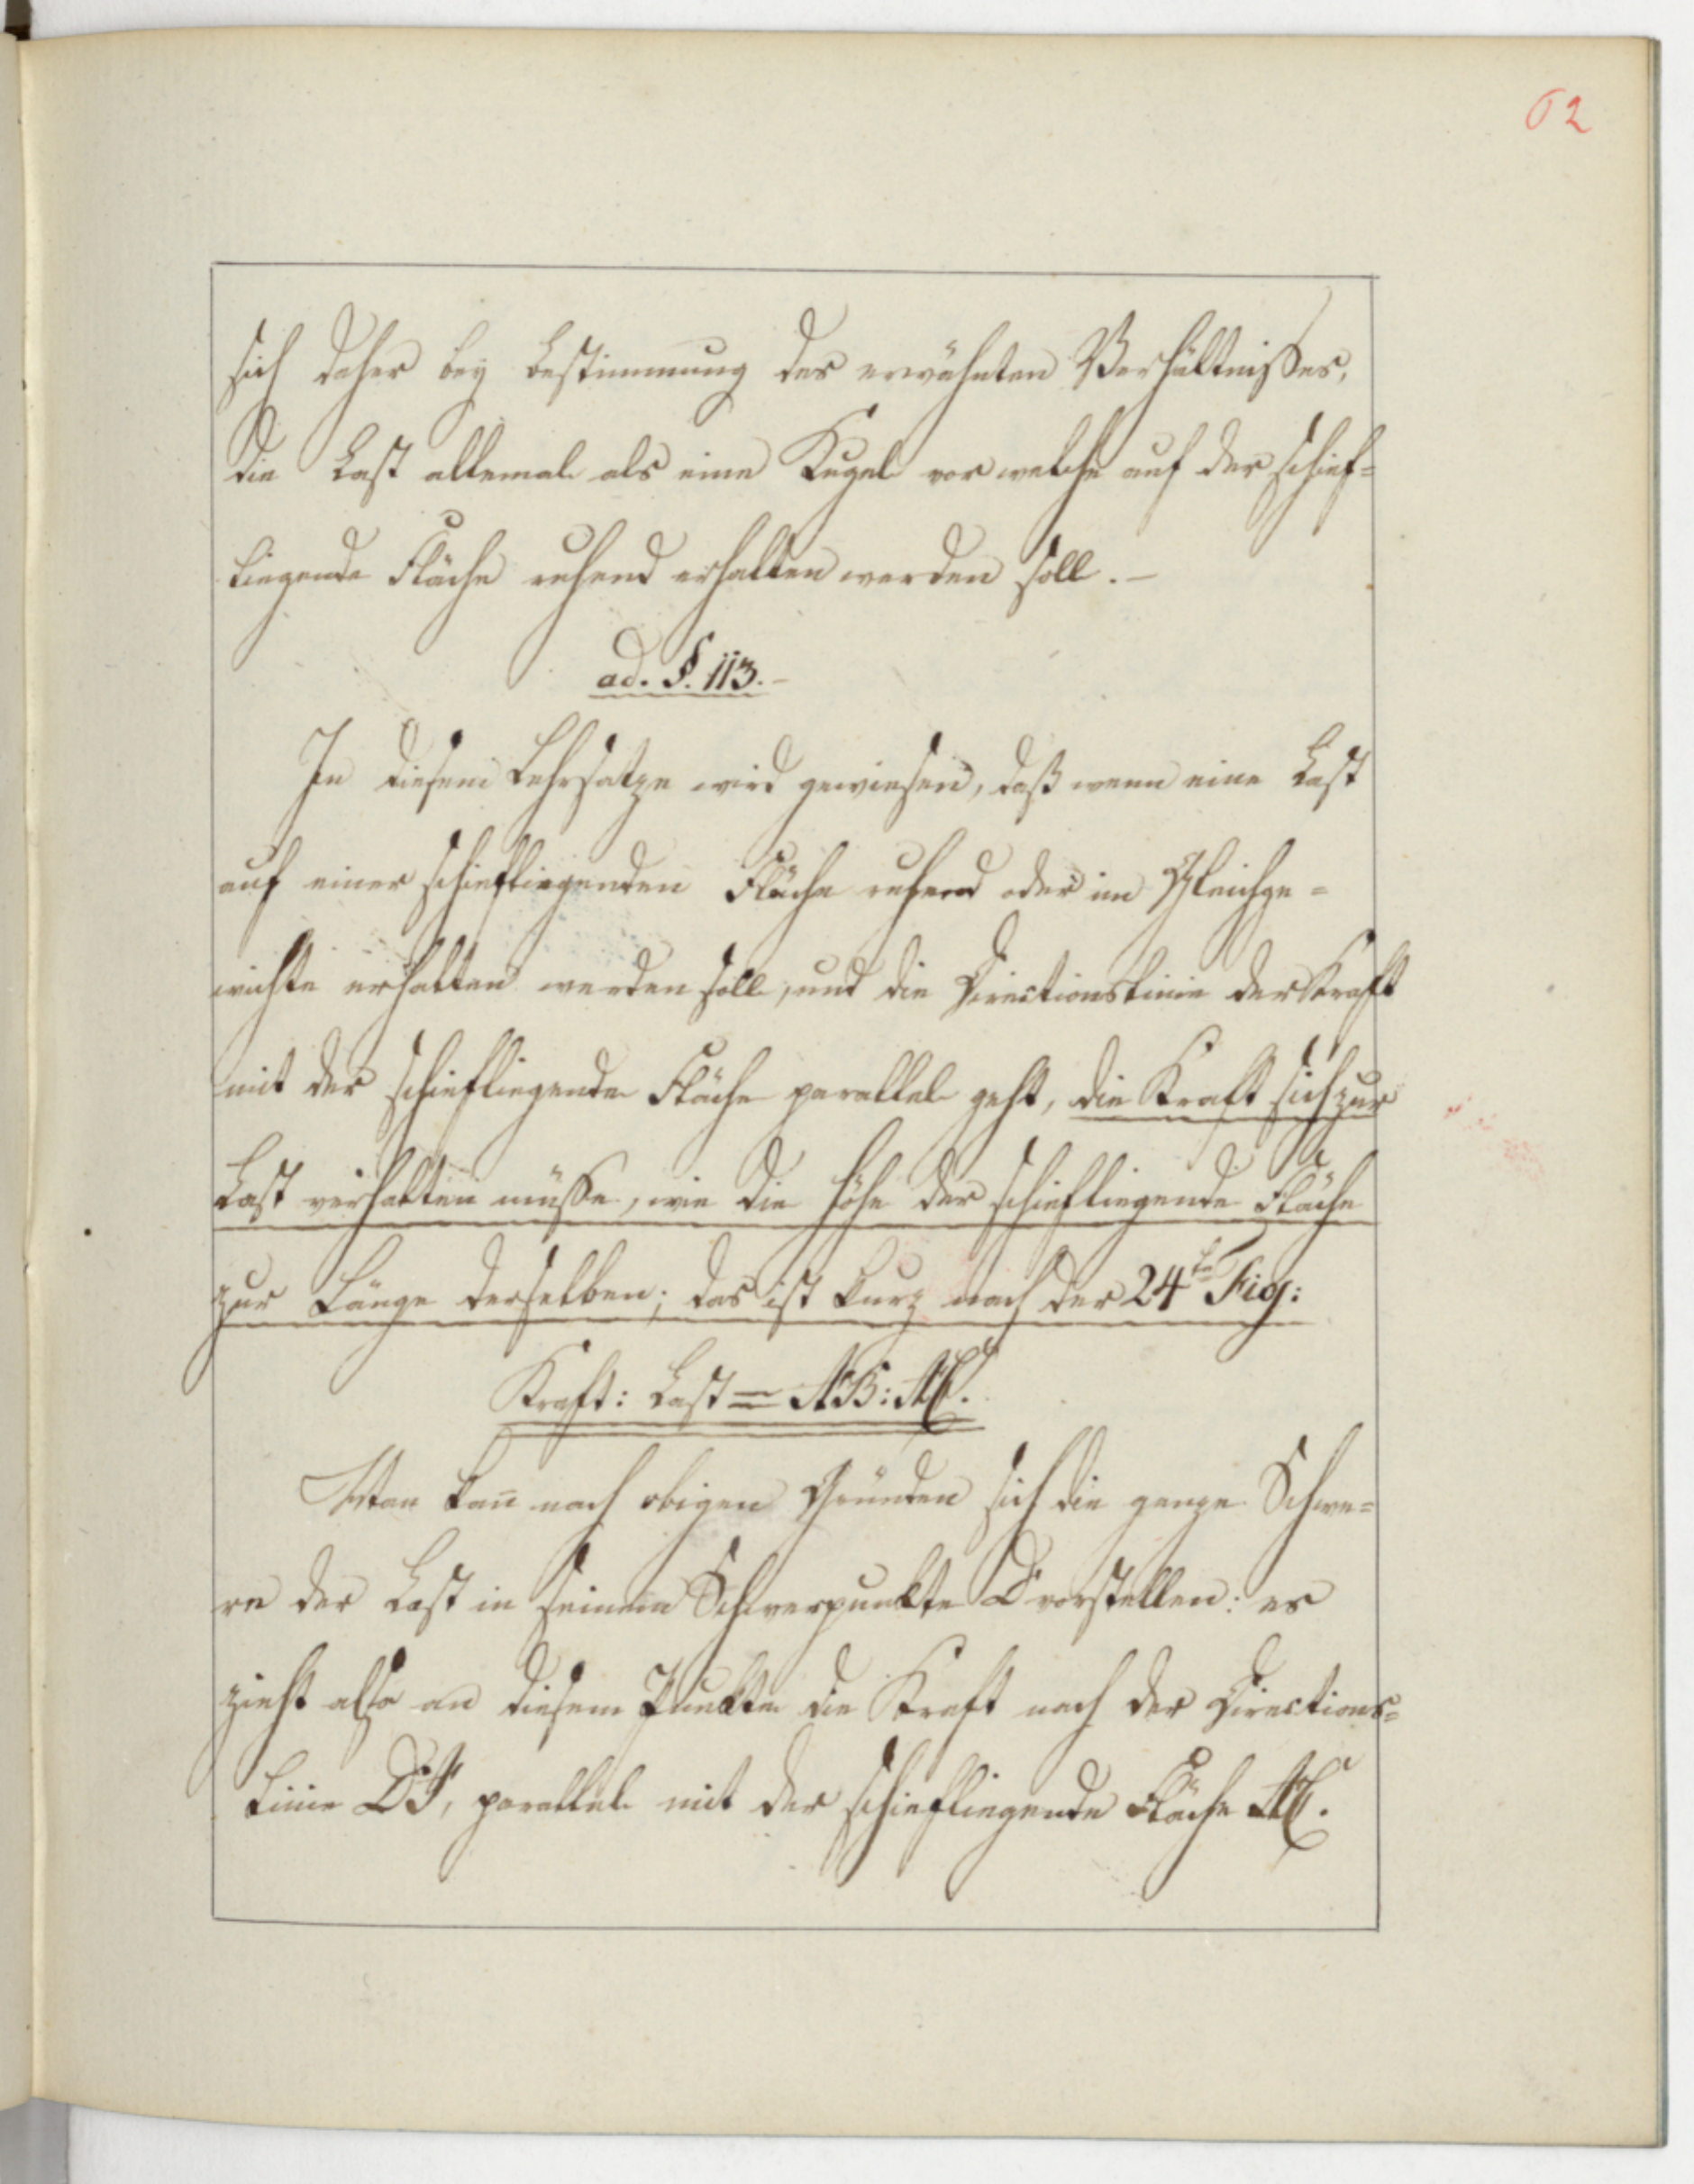 62
sich daher bey Bestimmung des erwähnten Verhältnißes,
die Last allemal als eine Kugel vor welche auf der schief=
liegende Fläche ruhend erhalten werden soll. –
ad. §. 113. –
In diesem Lehrsatze wird gewiesen, daß wenn eine Last
auf einer schiefliegenden Fläche ruhend oder im Gleichge=
wichte erhalten werden soll, und die Directionslinie der Kraft
mit der schiefliegende Fläche parallel geht, die Kraft sich zur
Last verhalten müße, wie die Höhe der schiefliegende Fläche
zur Länge derselben; das ist kurz nach der 24ten Fig:
Kraft: Last = AB: AC.
Man kan̄ nach obigen Gründen sich die ganze Schwe=
re der Last in seinem Schwerpunkte D vorstellen: es
zieht also an diesem Punkte die Kraft nach der Directions=
linie DF, parallel mit der schiefliegende Fläche AC.